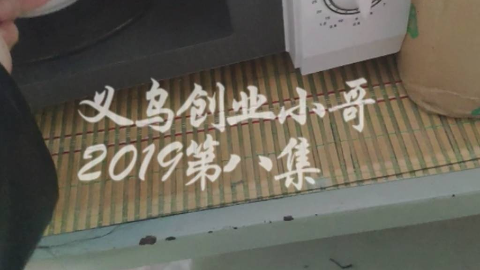 义乌创业小哥
2019第八集